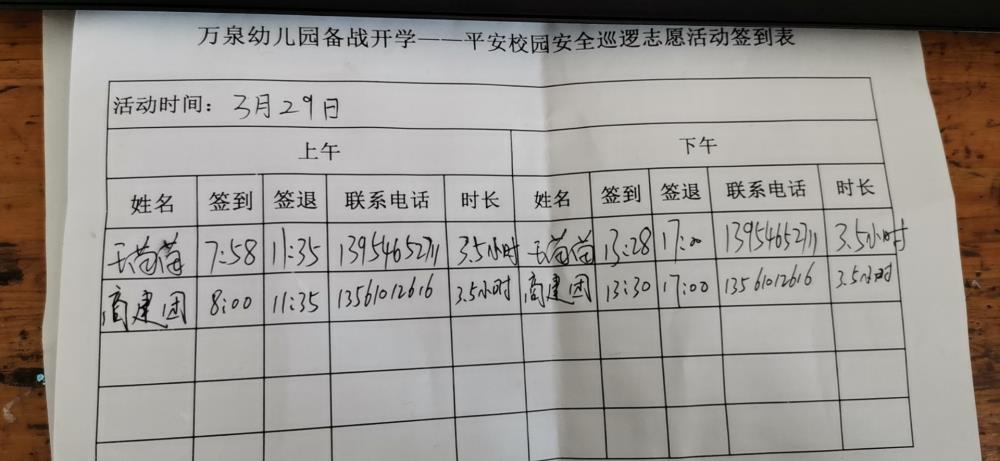 万泉幼儿园备战开学——平安校园安全巡逻志愿活动签到表
活动时间：3月29日
上午 下午
姓名 签到 签退 联系电话 时长 姓名 签到 签退 联系电话 时长
7:58 11:35 13954652711 3.5小时 13:28 17:00 13954652711 3.5小时
高建团 8:00 11:35 13561012616 3.5小时 高建团 13:30 17:00 13561012616 3.5小时